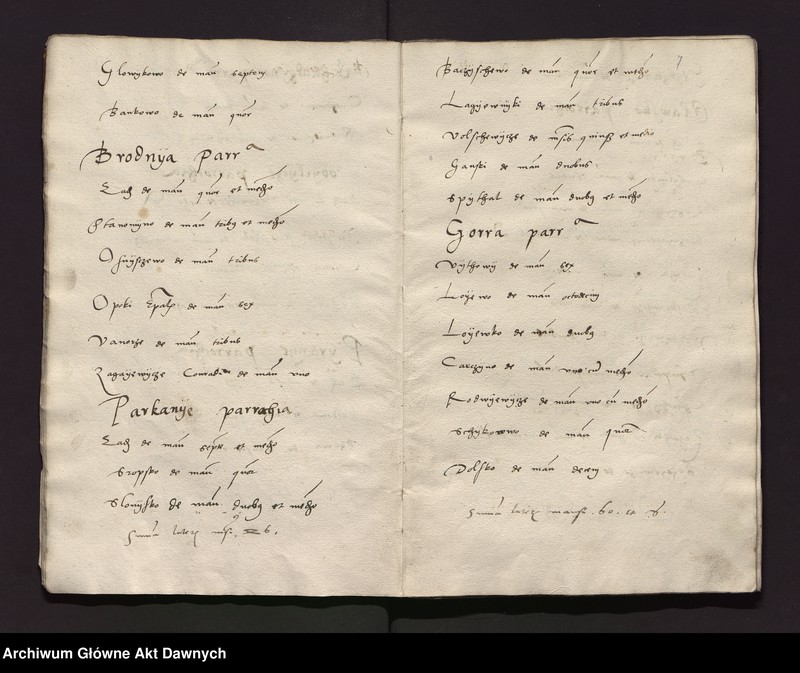 Glowykowo de man septem
Bankowo de man quor
Brodnya Parra
Lach de man quor et medio
Stanomyno de man tribus et medio
Osnyszewo de man tribus
Opoki de man sex
de man tribus
Conradi de man uno
Parkanye parrochia
Lach de man sept et medio
Sropsko de man quor
Slonsko de man duobus et medio
Suma
7
Baczyschewo de man quor et medio
Lagyewnyki de man tribus
Volschewycze de et medio
Ganski de man duobus
Spythal de man duobus et medio
Gorra parra
Vythowy de man sex
Loyewo de man octodecim
Loyewko de man duobus
Carczyno de man uno cum medio
Rodwyewycze de man uno cum medio
Schykowo de man quor
Dolsko de man decem
Suma 60
Archiwum Główne Akt Dawnych